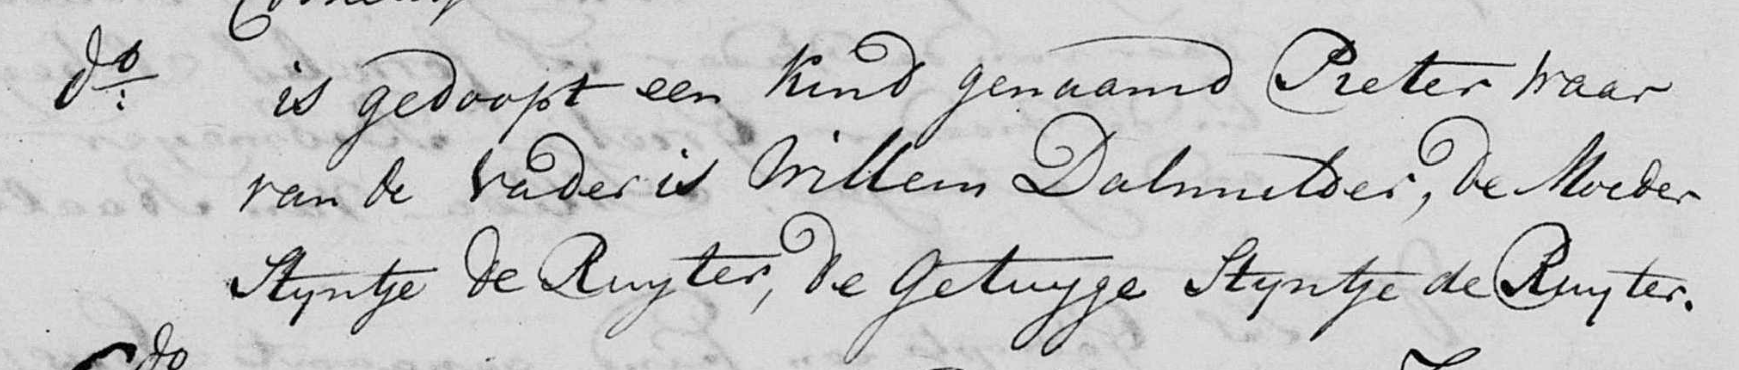 do: is gedoopt een Kind genaamd Pieter waar
van de Vader is Willem Dalmulder, de Moeder
Styntje de Ruyter, de Getuyge Styntje de Ruyter.
do